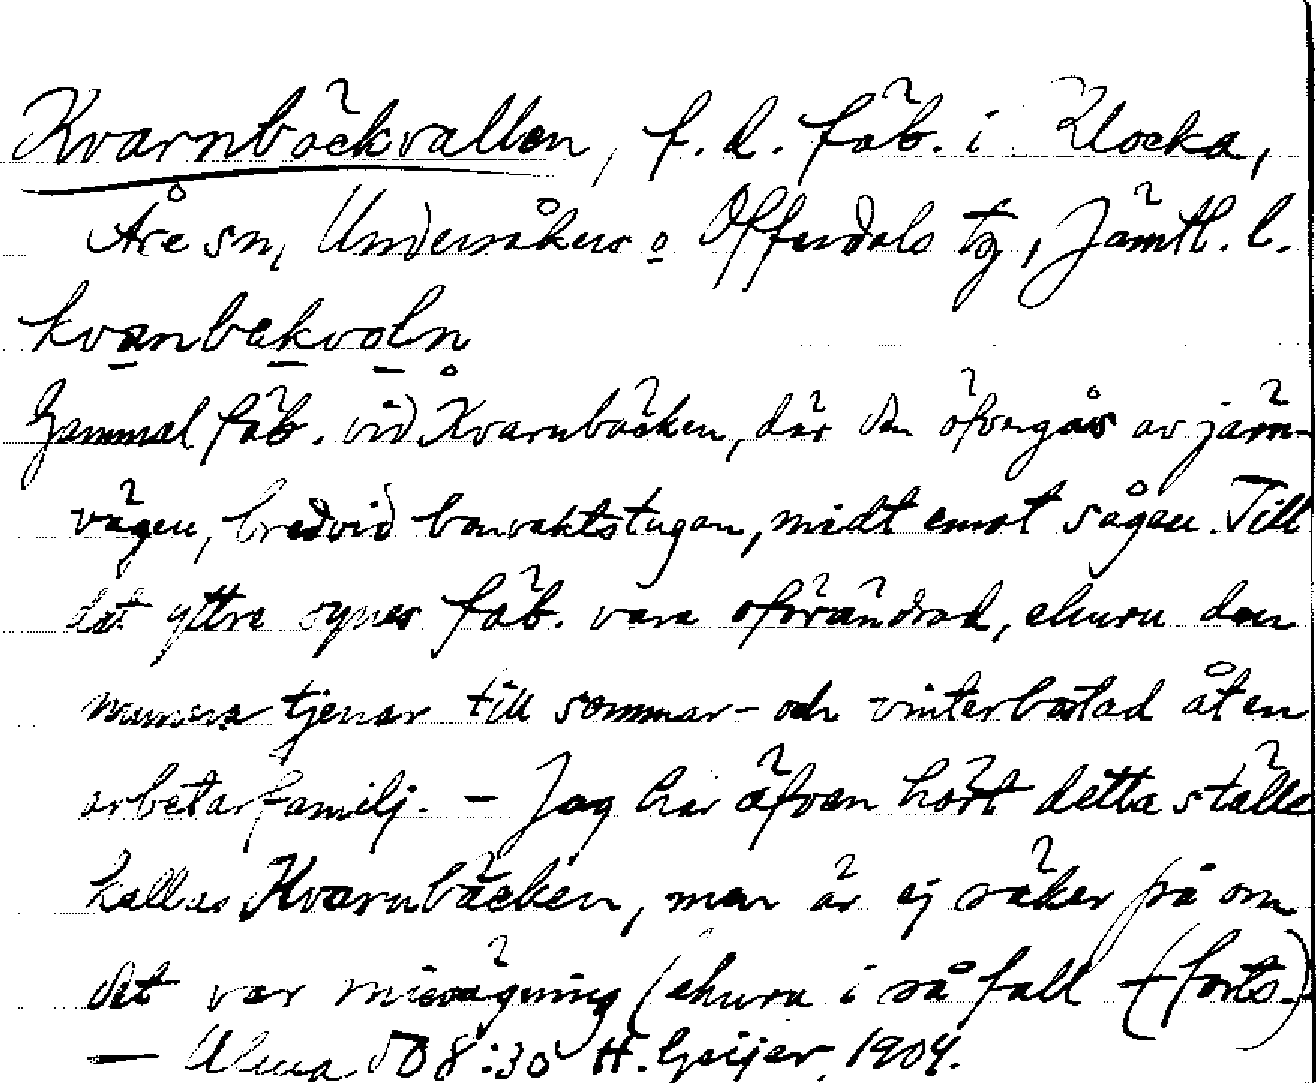 Kvarnbäckvallen, f.d. fäb. i Klocka,
Åre sn, Undersåkers o Offerdals tg, Jämtl. l.
kvanbakvoln
Gammal fäb. vid Kvarnbäcken, där den öfvergås av järn-
vägen, bredvid banvaktstugan, midt emot sågen. Till
det yttre synes fäb. vara oförändrad, ehuru den
numera tjenar till sommar- och vinterbostad åt en
arbetarfamilj. - Jag har äfven hört detta ställe
kallas Kvarnbäcken, men är ej säker på om
det var missägning (ehuru i så fall (forts.)
— 508:30 H. Geijer, 1904.